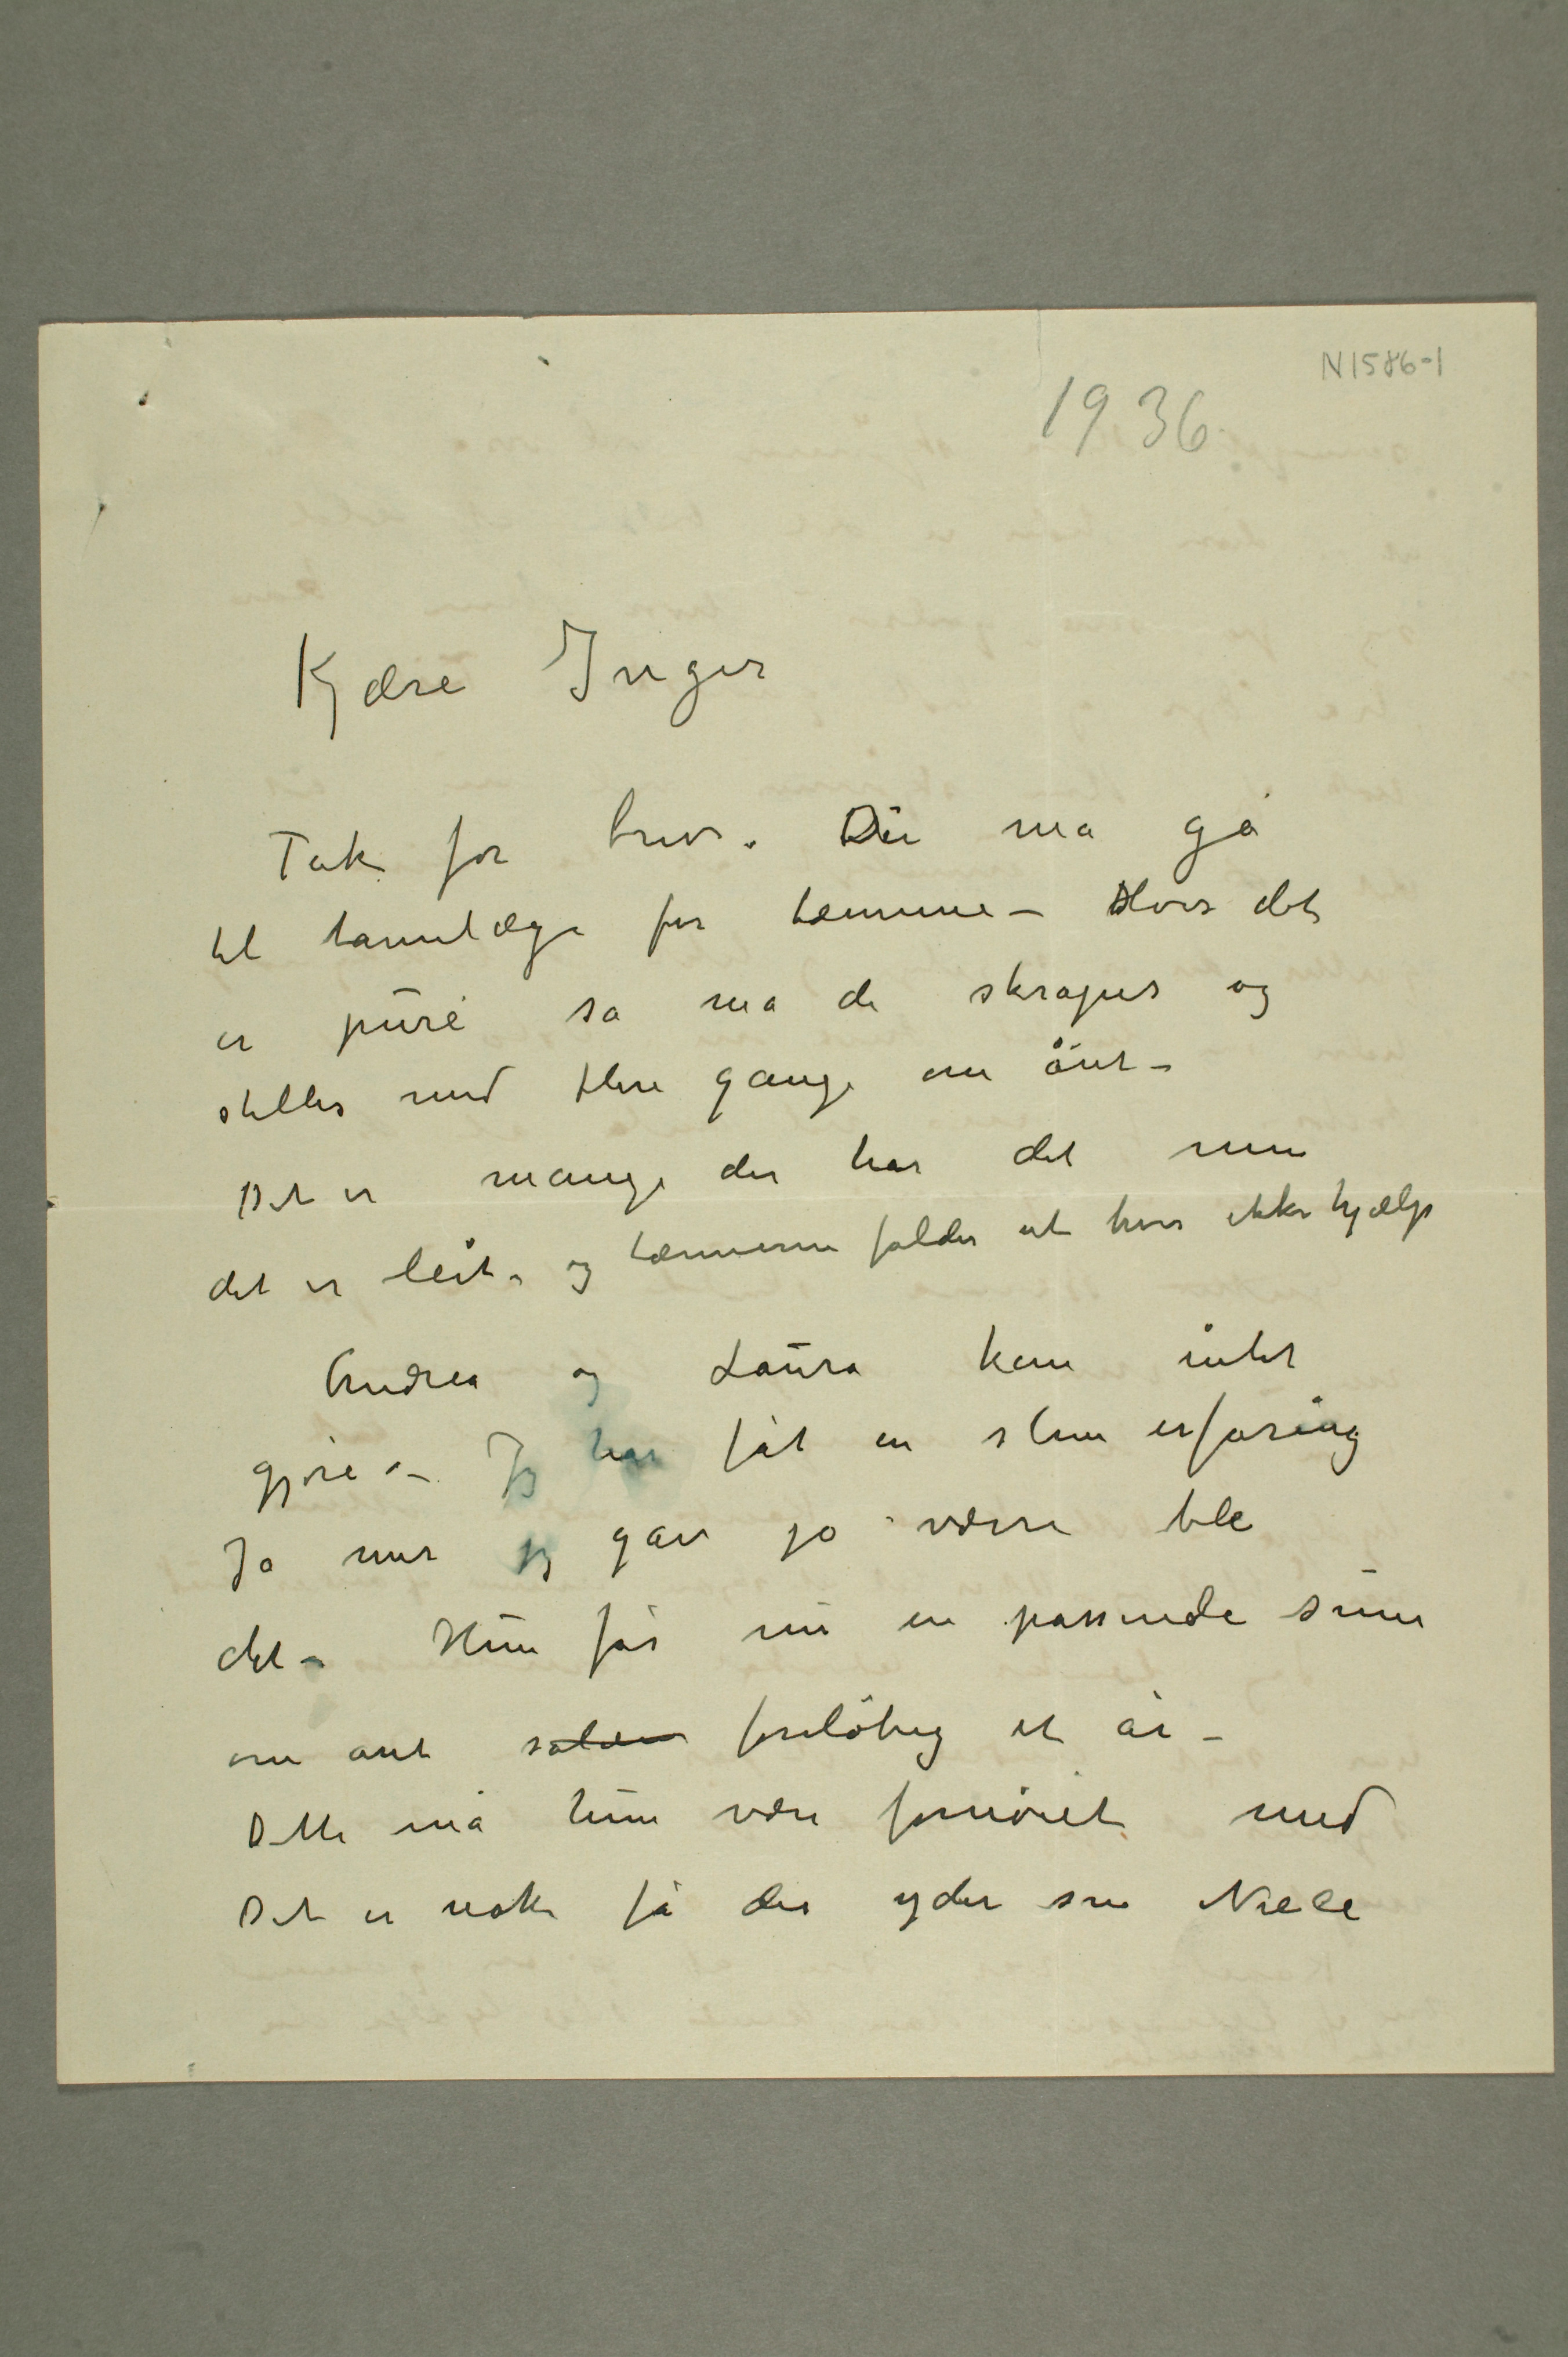 N1586-1
1936
Kjære Inger
Tak for brev. Du må gå
til tannlæge for tænnene – Hvis det
er pure så må de skrapes og
stelles med flere gange om året –
Det er mange der har det men
det er leit – og tænnerne falder ut hvis ikke hjælp
Andrea og Laura kan intet
gjøre – Jeg har fåt en slem erfaring
Jo mer jeg gav jo værre ble
det – Hun får nu en passende sum
om året sålæn foreløbig et år –
Dette må hun være fornøiet med
Det er nok få der yder sin Niece